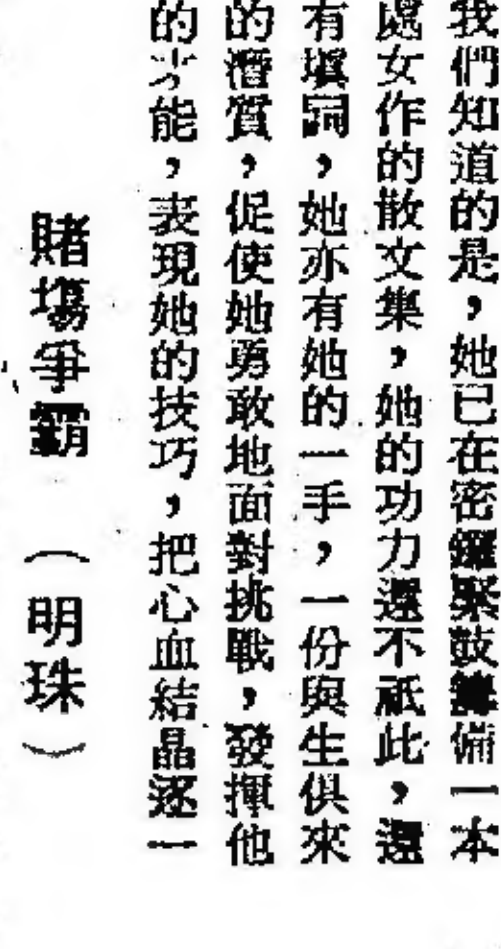 我們知道的是，她已在密鑼緊鼓籌備一本
處女作的散文集，她的功力還不祇此，還
有填詞，她亦有她的一手，一份與生俱來
的潛質，促使她勇敢地面對挑戰，發揮他
的才能，表現她的技巧，把心血結晶逐一
賭場爭霸 （明珠）